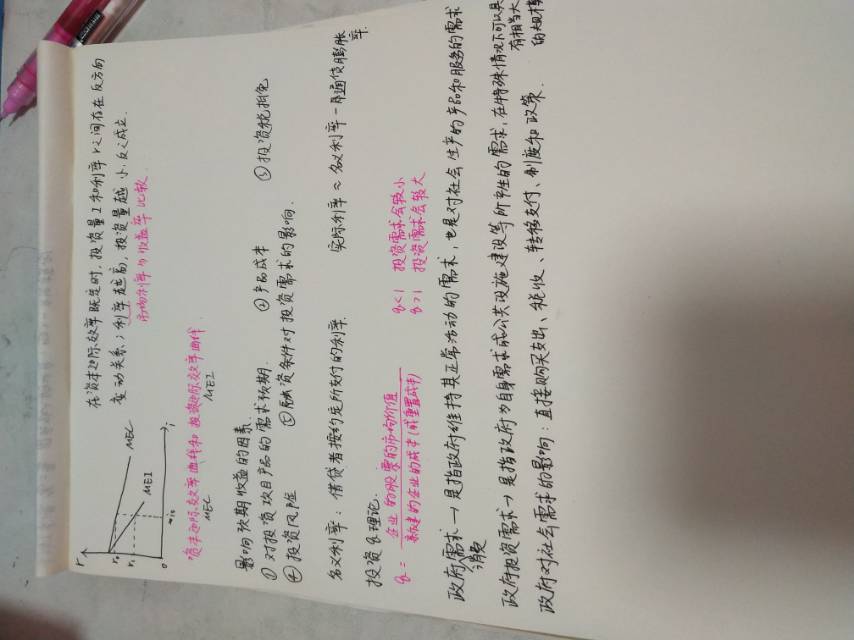 在资本边际效率既定时，投资量I和利率r之间存在反方向
变动关系；利率越高，投资量越小，反之成立.
市场利率与收益率比较
r
r₀
r₁
MEC
MEI
0
i₀
i
资本边际效率曲线和投资边际效率曲线
MEC MEI
影响预期收益的因素.
①对投资项目产品的需求预期. ②产品成本 ③投资税抵免
④投资风险 ⑤融资条件对投资需求的影响.
名义利率：借贷者按约定所支付的利率. 实际利率≈名义利率-预期通货膨胀率.
投资q理论.
q = 企业的股票的市场价值 / 新建的企业的成本(或重置成本)
q<1 投资需求会较小
q>1 投资需求会较大
政府消费需求→是指政府维持其正常活动的需求，也是对社会生产的产品和服务的需求
政府投资需求→是指政府为自身需求或公共设施建设等所产生的需求，在特殊情况下可以具有相当大的规模
政府对社会需求的影响：直接购买支出、税收、转移支付、制度和政策.